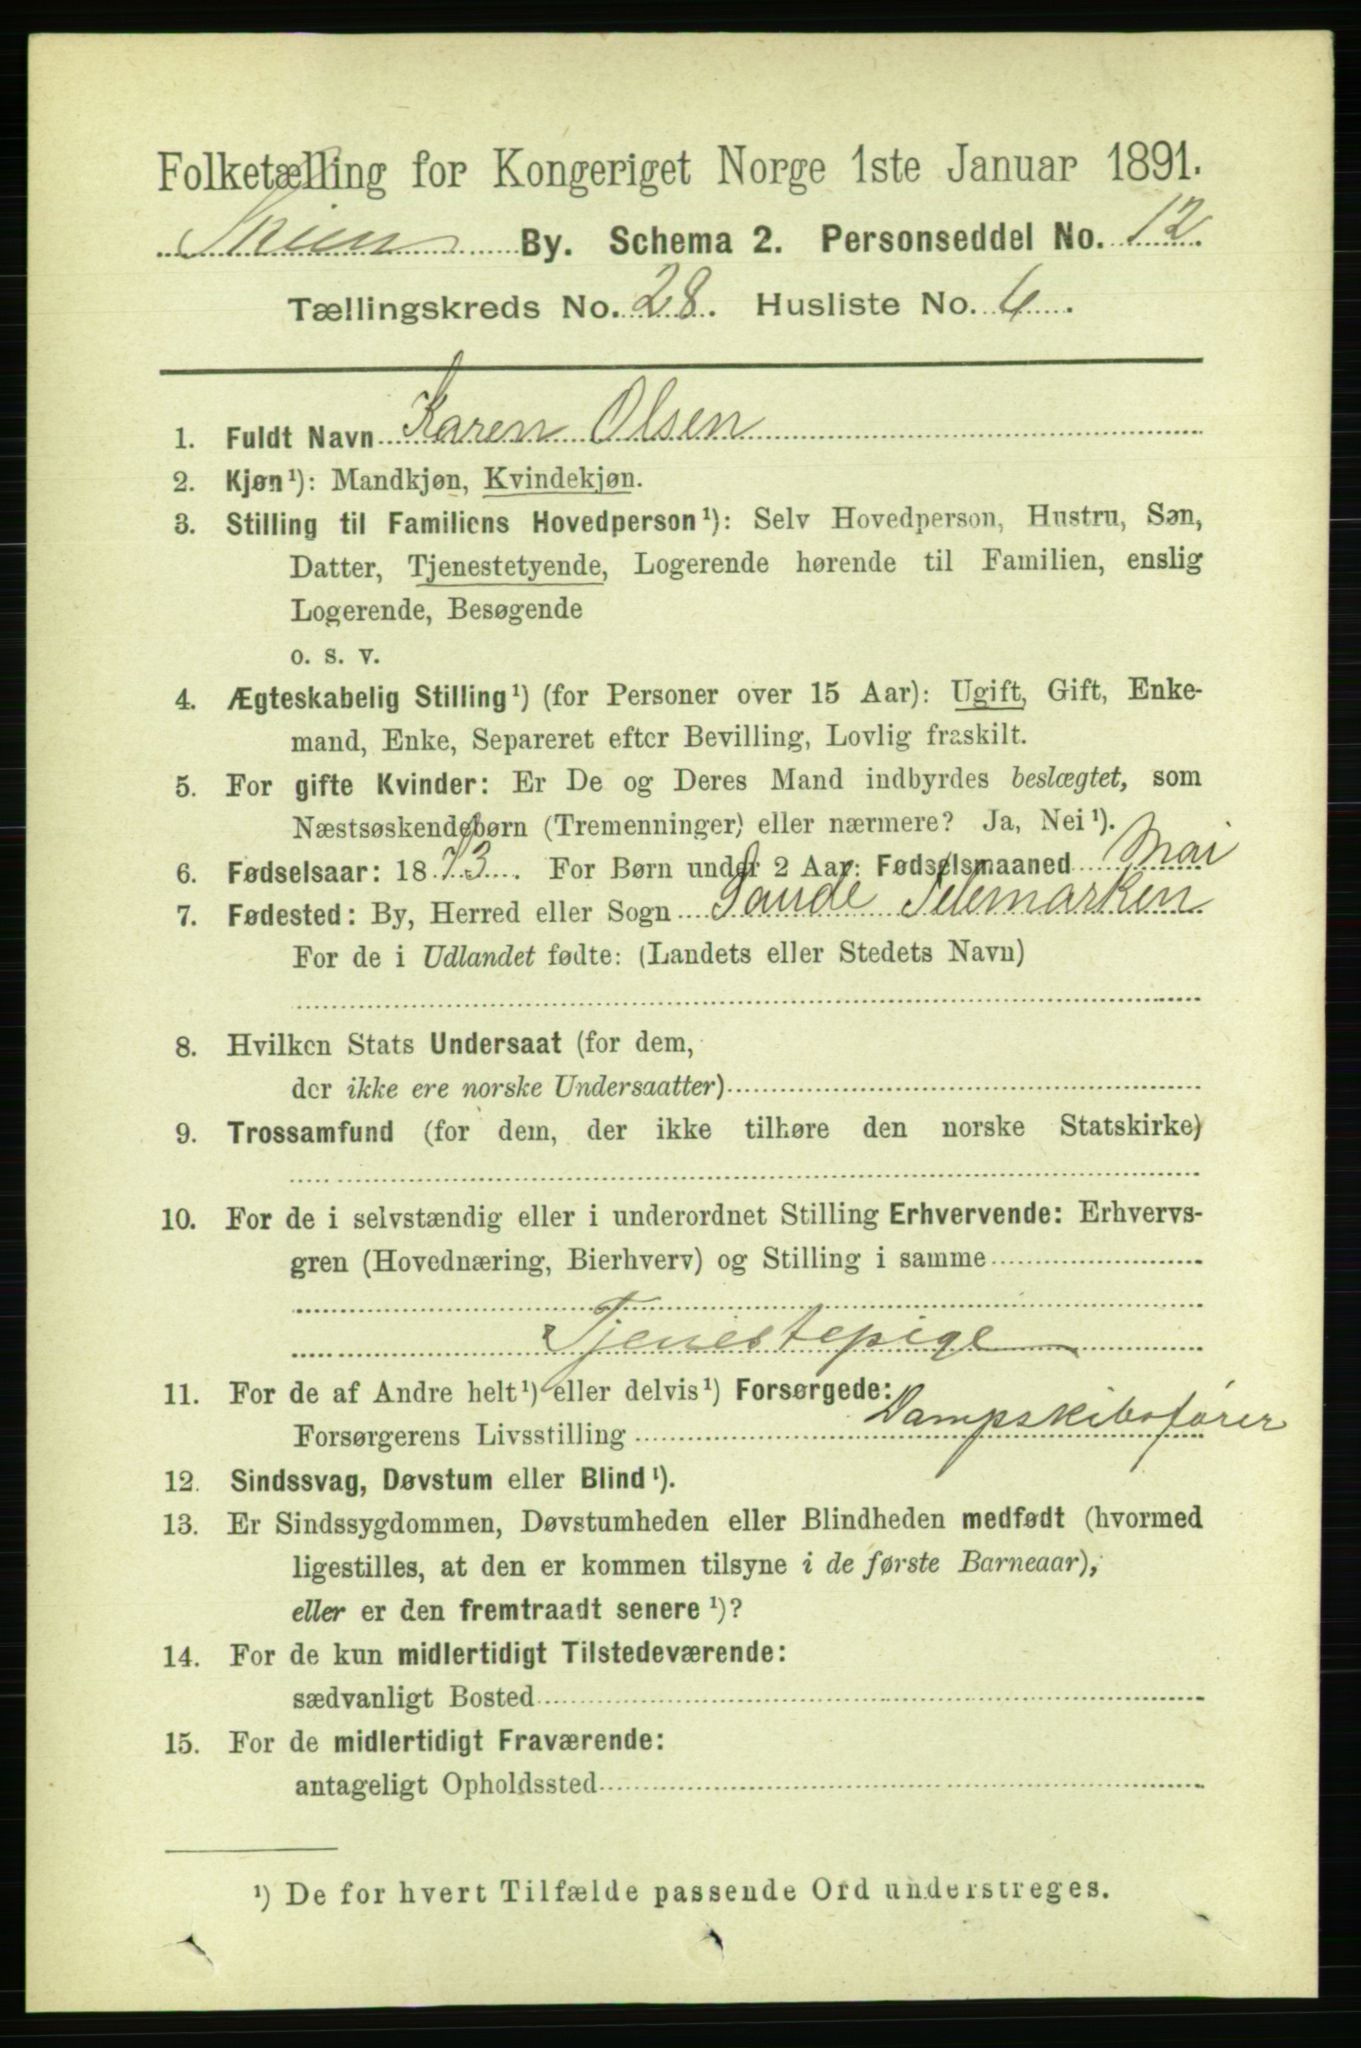 Folketælling for Kongeriget Norge 1ste Januar 1891.
Skien By. Schema 2. Personseddel No. 12
Tællingskreds No. 28. Husliste No. 6.
1. Fuldt Navn Karen Olsen
2. Kjøn¹): Mandkjøn, Kvindekjøn.
3. Stilling til Familiens Hovedperson¹): Selv Hovedperson, Hustru, Søn,
Datter, Tjenestetyende, Logerende hørende til Familien, enslig
Logerende, Besøgende
o. s. v.
4. Ægteskabelig Stilling¹) (for Personer over 15 Aar): Ugift, Gift, Enke-
mand, Enke, Separeret efter Bevilling, Lovlig fraskilt.
5. For gifte Kvinder: Er De og Deres Mand indbyrdes beslægtet, som
Næstsøskendebørn (Tremenninger) eller nærmere? Ja, Nei¹).
6. Fødselsaar: 1873. For Børn under 2 Aar: Fødselsmaaned Mai
7. Fødested: By, Herred eller Sogn Saude Telemarken
For de i Udlandet fødte: (Landets eller Stedets Navn)
8. Hvilken Stats Undersaat (for dem,
der ikke ere norske Undersaatter)
9. Trossamfund (for dem, der ikke tilhøre den norske Statskirke)
10. For de i selvstændig eller i underordnet Stilling Erhvervende: Erhvervs-
gren (Hovednæring, Bierhverv) og Stilling i samme
Tjenestepige
11. For de af Andre helt¹) eller delvis¹) Forsørgede:
Forsørgerens Livsstilling Dampskibsfører
12. Sindssvag, Døvstum eller Blind¹).
13. Er Sindssygdommen, Døvstumheden eller Blindheden medfødt (hvormed
ligestilles, at den er kommen tilsyne i de første Barneaar),
eller er den fremtraadt senere¹)?
14. For de kun midlertidigt Tilstedeværende:
sædvanligt Bosted
15. For de midlertidigt Fraværende:
antageligt Opholdssted
¹) De for hvert Tilfælde passende Ord understreges.